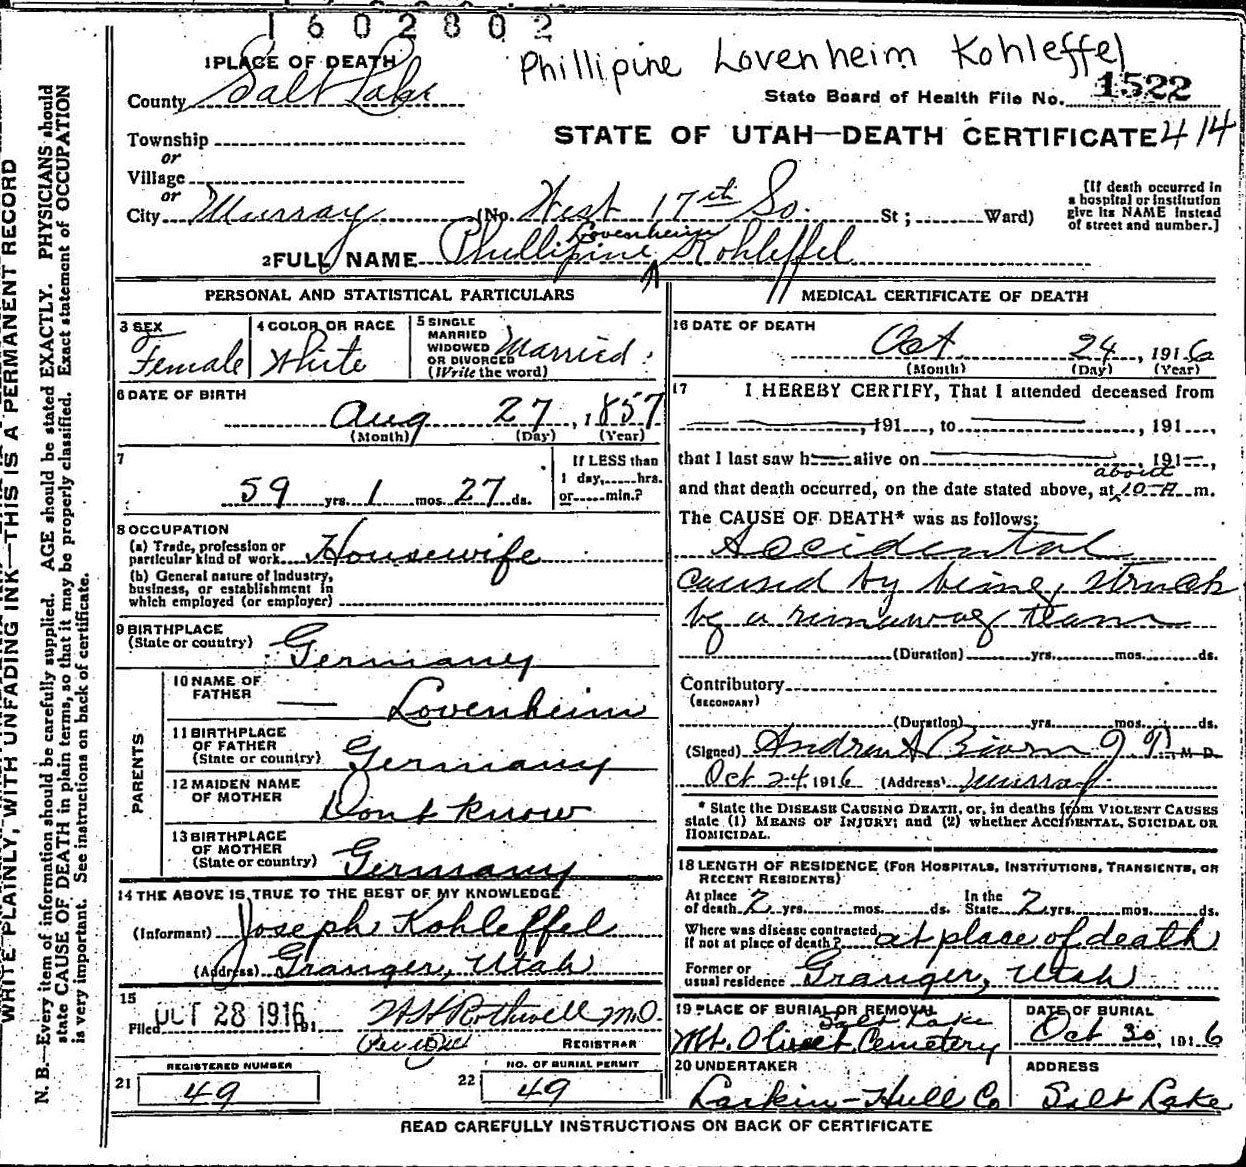 1602802
Phillipine Lovenheim Kohleffel
1 PLACE OF DEATH
County Salt Lake
State Board of Health File No. 1522
Township
STATE OF UTAH—DEATH CERTIFICATE 414
or
Village
or
City Murray (No. West 17th So. St; Ward)
[If death occurred in a hospital or institution give its NAME instead of street and number.]
Lovenheim
2 FULL NAME Phillipine Kohleffel
PERSONAL AND STATISTICAL PARTICULARS
3 SEX Female
4 COLOR OR RACE White
5 SINGLE MARRIED WIDOWED OR DIVORCED (Write the word) Married
6 DATE OF BIRTH
Aug 27, 1857
(Month) (Day) (Year)
7
59 yrs. 1 mos. 27 ds.
If LESS than 1 day, hrs. or min.?
8 OCCUPATION
(a) Trade, profession or particular kind of work Housewife
(b) General nature of industry, business, or establishment in which employed (or employer)
9 BIRTHPLACE
(State or country) Germany
PARENTS
10 NAME OF FATHER — Lovenheim
11 BIRTHPLACE OF FATHER (State or country) Germany
12 MAIDEN NAME OF MOTHER Dont know
13 BIRTHPLACE OF MOTHER (State or country) Germany
14 THE ABOVE IS TRUE TO THE BEST OF MY KNOWLEDGE
(Informant) Joseph Kohleffel
(Address) Granger, Utah
15
Filed OCT 28 1916 191 W H Rothwell M.D.
REGISTRAR
21 REGISTERED NUMBER 49
22 NO. OF BURIAL PERMIT 49
MEDICAL CERTIFICATE OF DEATH
16 DATE OF DEATH
Oct 24, 1916
(Month) (Day) (Year)
17 I HEREBY CERTIFY, That I attended deceased from
, 191 , to , 191 ,
that I last saw h alive on , 191 ,
about
and that death occurred, on the date stated above, at 10-A m.
The CAUSE OF DEATH* was as follows:
Accidental
caused by being struck
by a runaway team
(Duration) yrs. mos. ds.
Contributory
(SECONDARY)
(Duration) yrs. mos. ds.
(Signed) Andrew A J.P. M.D.
Oct 24, 1916 (Address) Murray
* State the DISEASE CAUSING DEATH, or, in deaths from VIOLENT CAUSES
state (1) MEANS OF INJURY; and (2) whether ACCIDENTAL, SUICIDAL OR
HOMICIDAL.
18 LENGTH OF RESIDENCE (FOR HOSPITALS, INSTITUTIONS, TRANSIENTS, OR
RECENT RESIDENTS)
At place of death 2 yrs. mos. ds. In the State 2 yrs. mos. ds.
Where was disease contracted if not at place of death? at place of death
Former or usual residence Granger, Utah
19 PLACE OF BURIAL OR REMOVAL
Salt Lake
Mt. Olivet Cemetery
DATE OF BURIAL
Oct 30, 1916
20 UNDERTAKER
Larkin-Hull Co
ADDRESS
Salt Lake
READ CAREFULLY INSTRUCTIONS ON BACK OF CERTIFICATE
WRITE PLAINLY, WITH UNFADING INK—THIS IS A PERMANENT RECORD
N. B.—Every item of information should be carefully supplied. AGE should be stated EXACTLY. PHYSICIANS should
state CAUSE OF DEATH in plain terms, so that it may be properly classified. Exact statement of OCCUPATION
is very important. See instructions on back of certificate.